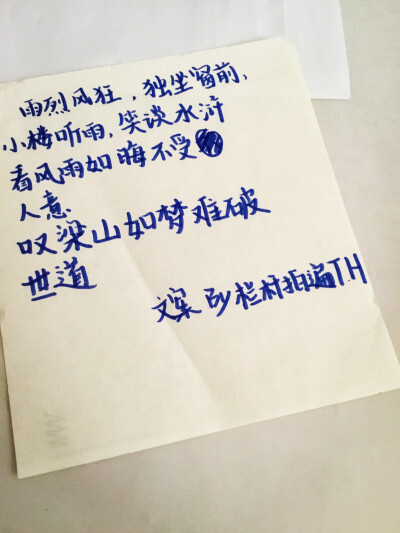 雨烈风狂，独坐窗前，
小楼听雨，笑谈水浒
看风雨如晦不受
人意
叹梁山如梦难破
世道
文案 By 栏杆拍遍T.H